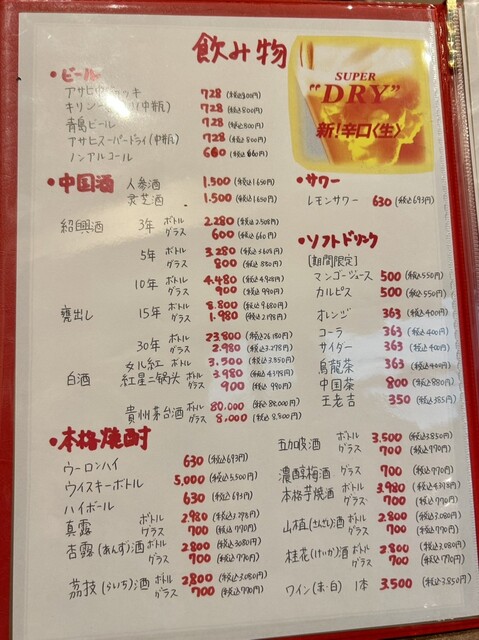 飲み物
SUPER
"DRY"
新!辛口〈生〉
・ビール
アサヒ中ジョッキ 728
キリン (中瓶) 728 (税込800円)
青島ビール 728 (税込800円)
アサヒスーパードライ(中瓶) 728 (税込800円)
ノンアルコール 600
・中国酒 人参酒 1.500 (税込1650円)
霊芝酒 1.500 (税込1.650円)
紹興酒 3年 ボトル 2.280 (税込2.508円)
グラス 600 (税込660円)
5年 ボトル 3.280 (税込3.608円)
グラス 800 (税込880円)
10年 ボトル 4.480 (税込4.928円)
グラス 900 (税込990円)
甕出し 15年 ボトル 8.800 (税込9.680円)
グラス 1.980 (税込2.178円)
30年 ボトル 23.800 (税込26.180円)
グラス 2.980 (税込3.278円)
女儿紅 ボトル 3.500 (税込3.850円)
白酒 紅星二锅头 ボトル 3.980 (税込4378円)
グラス 900 (税込990円)
貴州茅台酒 ボトル 80.000 (税込88,000円)
グラス 8,000 (税込8.800円)
・サワー
レモンサワー 630 (税込693円)
・ソフトドリンク
[期間限定]
マンゴージュース 500 (税込550円)
カルピス 500 (税込550円)
オレンジ 363 (税込400円)
コーラ 363 (税込400円)
サイダー 363 (税込400円)
烏龍茶 363 (税込400円)
中国茶 800 (税込880円)
王老吉 350 (税込385円)
・本格焼酎
ウーロンハイ 630 (税込693円)
ウイスキーボトル 5,000 (税込5,500円)
ハイボール 630 (税込693円)
真露 ボトル 2.980 (税込3.278円)
グラス 700 (税込770円)
杏露(あんず)酒 ボトル 2.800 (税込3080円)
グラス 700 (税込770円)
茘枝(らいち)酒 ボトル 2,800 (税込3,080円)
グラス 700 (税込770円)
五加皮酒 ボトル 3.500 (税込3.850円)
グラス 700 (税込770円)
濃醇梅酒 グラス 700 (税込770円)
本格芋焼酒 ボトル 3.980 (税込4378円)
グラス 700 (税込770円)
山植(さんざし)酒 ボトル 2.800 (税込3.080円)
グラス 700 (税込770円)
桂花(けいか)酒 ボトル 2.800 (税込3.080円)
グラス 700 (税込770円)
ワイン(赤・白) 1本 3.500 (税込3.850円)